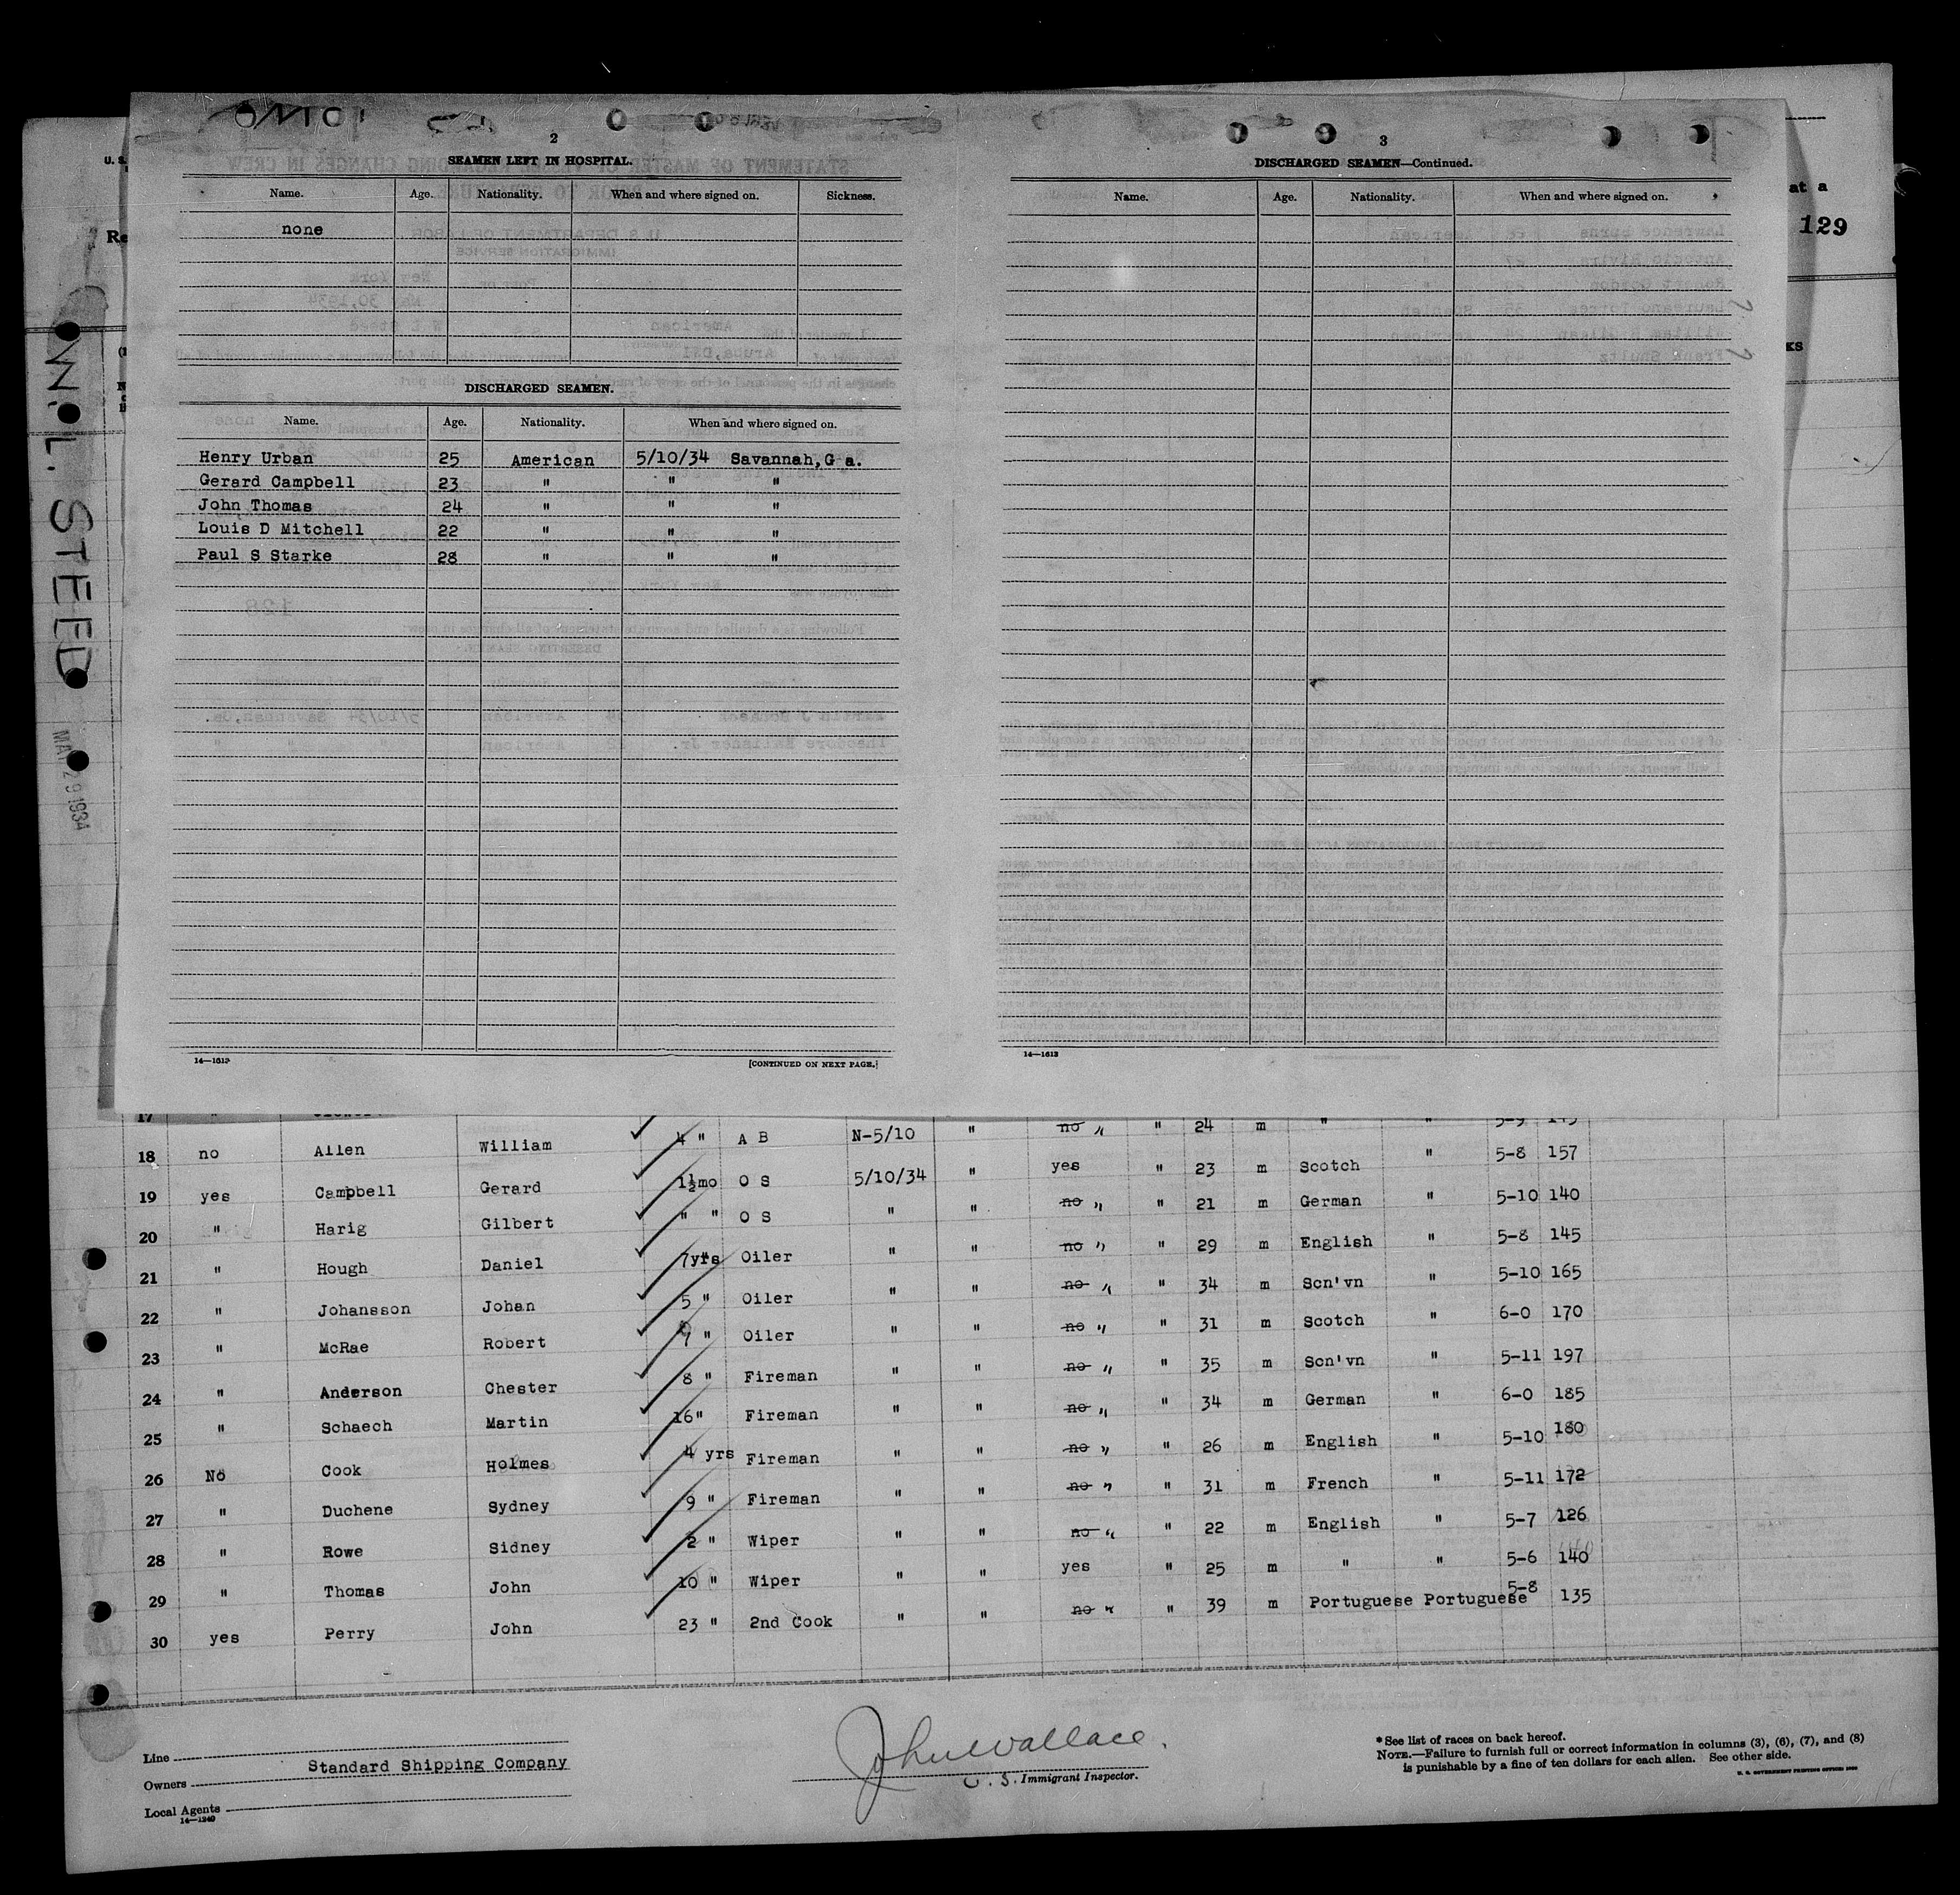 2
SEAMEN LEFT IN HOSPITAL.
Name. Age. Nationality. When and where signed on. Sickness.
none
DISCHARGED SEAMEN.
Name. Age. Nationality. When and where signed on.
Henry Urban 25 American 5/10/34 Savannah,G a.
Gerard Campbell 23 " " "
John Thomas 24 " " "
Louis D Mitchell 22 " " "
Paul S Starke 28 " " "
14—1613
[CONTINUED ON NEXT PAGE.]
3
DISCHARGED SEAMEN—Continued.
Name. Age. Nationality. When and where signed on.
14—1613
at a
129
KS
U. S.
Re
W. L. STEED
MAY 29 1934
17 " 24 m " " 5-9 145
18 no Allen William 4 " A B N-5/10 " no " " 23 m Scotch " 5-8 157
19 yes Campbell Gerard 1½mo O S 5/10/34 " yes " 21 m German " 5-10 140
20 " Harig Gilbert " " O S " " no " " 29 m English " 5-8 145
21 " Hough Daniel 7yrs Oiler " " no " " 34 m Scn'vn " 5-10 165
22 " Johansson Johan 5 " Oiler " " no " " 31 m Scotch " 6-0 170
23 " McRae Robert 7 " Oiler " " no " " 35 m Scn'vn " 5-11 197
24 " Anderson Chester 8 " Fireman " " no " " 34 m German " 6-0 185
25 " Schaech Martin 16" Fireman " " no " " 26 m English " 5-10 180
26 No Cook Holmes 4 yrs Fireman " " no " " 31 m French " 5-11 172
27 " Duchene Sydney 9 " Fireman " " no " " 22 m English " 5-7 126
28 " Rowe Sidney 2 " Wiper " " no " " 25 m " " 5-6 140
29 " Thomas John 10 " Wiper " " yes " 39 m Portuguese Portuguese 5-8 135
30 yes Perry John 23 " 2nd Cook " " no "
Line
Owners Standard Shipping Company
Local Agents
14—1240
John Wallace.
U. S. Immigrant Inspector.
*See list of races on back hereof.
NOTE.—Failure to furnish full or correct information in columns (3), (6), (7), and (8)
is punishable by a fine of ten dollars for each alien. See other side.